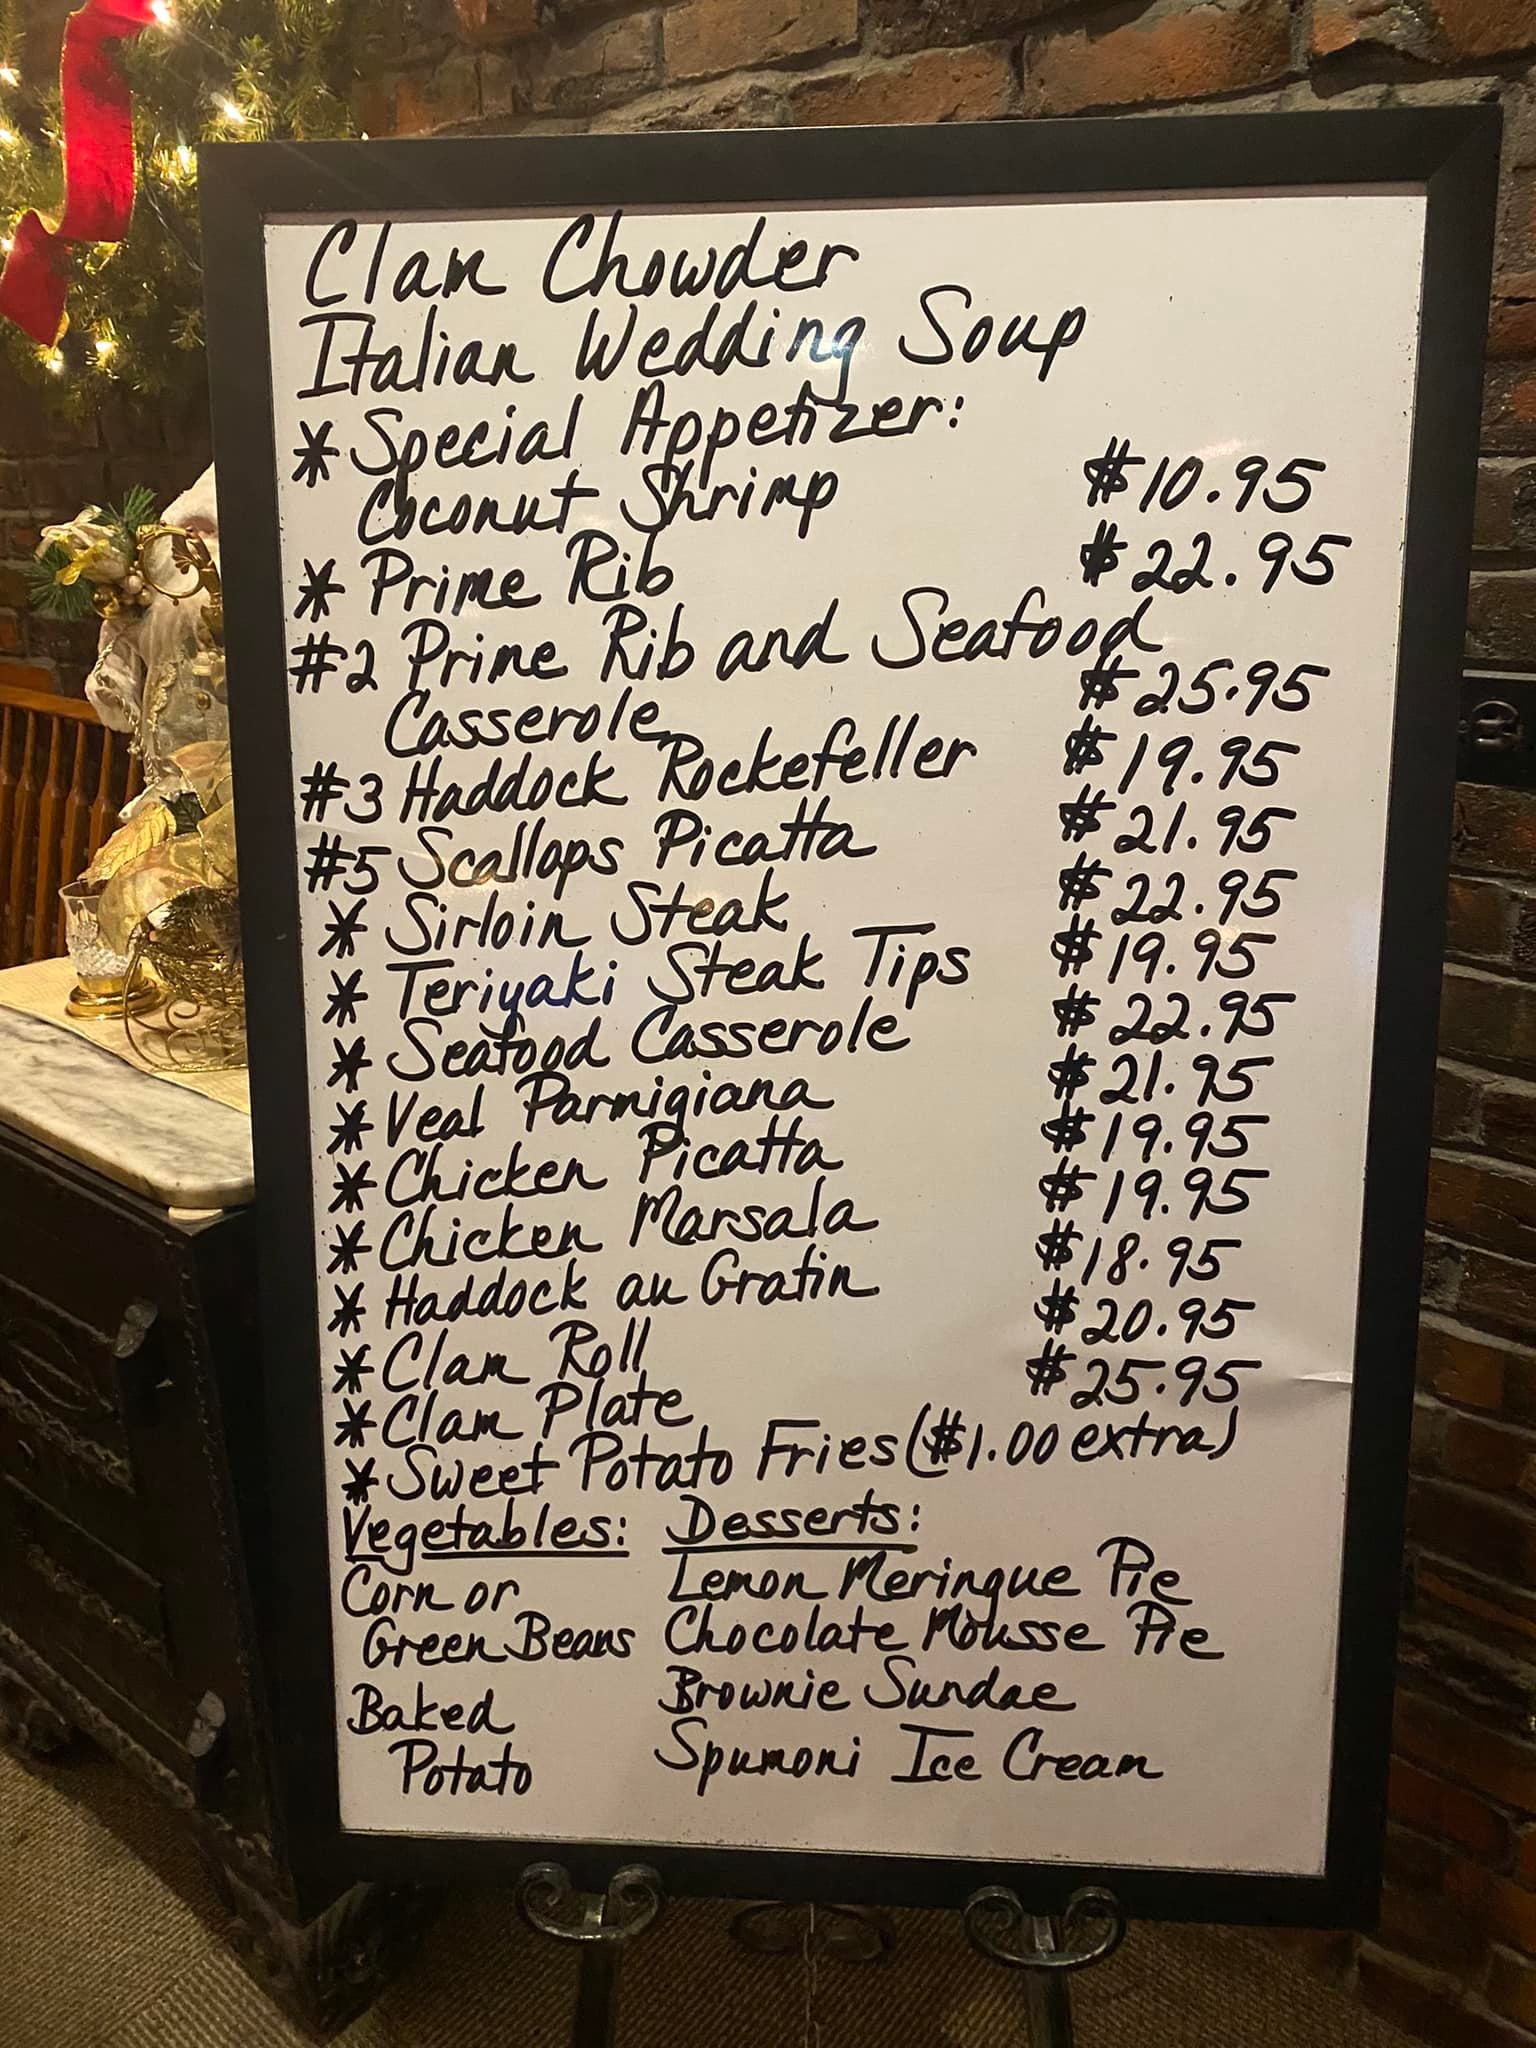 Clam Chowder
Italian Wedding Soup
* Special Appetizer:
Coconut Shrimp $10.95
* Prime Rib $22.95
#2 Prime Rib and Seafood
Casserole $25.95
#3 Haddock Rockefeller $19.95
#5 Scallops Picatta $21.95
* Sirloin Steak $22.95
* Teriyaki Steak Tips $19.95
* Seafood Casserole $22.95
* Veal Parmigiana $21.95
* Chicken Picatta $19.95
* Chicken Marsala $19.95
* Haddock au Gratin $18.95
* Clam Roll $20.95
* Clam Plate $25.95
* Sweet Potato Fries ($1.00 extra)
Vegetables:
Corn or
Green Beans
Baked
Potato
Desserts:
Lemon Meringue Pie
Chocolate Mousse Pie
Brownie Sundae
Spumoni Ice Cream